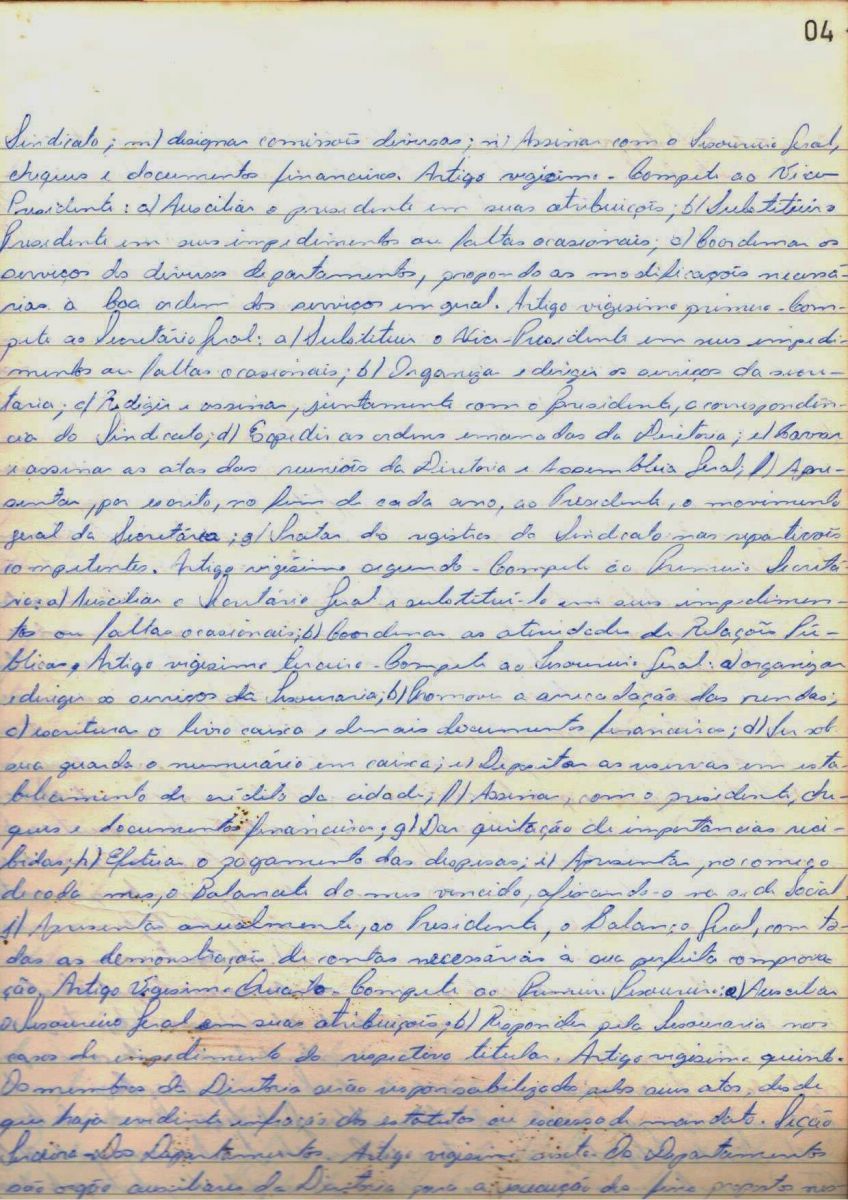 04
Sindicato; m) designar comissões diversas; n) Assinar com o Tesoureiro Geral,
cheques e documentos financeiros. Artigo vigésimo - Compete ao Vice-
Presidente: a) Auxiliar o presidente em suas atribuições; b) Substituir o
Presidente em seus impedimentos ou faltas ocasionais; c) Coordenar os
serviços do diversos departamentos, propondo as modificações necessá-
rias a boa ordem dos serviços em geral. Artigo vigésimo primeiro - Com-
pete ao Secretário Geral: a) Substituir o Vice-Presidente em seus impedi-
mentos ou faltas ocasionais; b) Organizar e dirigir os serviços da secre-
taria; c) Redigir e assinar, juntamente com o Presidente, a correspondên-
cia do Sindicato; d) Expedir as ordens emanadas da Diretoria; e) Lavrar
e assinar as atas das reuniões da Diretoria e Assembléia Geral; f) Apre-
sentar, por escrito, no fim de cada ano, ao Presidente, o movimento
geral da Secretária; g) Tratar do registro do Sindicato nas repartições
competentes. Artigo vigésimo segundo - Compete ao Primeiro Secretá-
rio: a) Auxiliar o Secretário Geral e substituí-lo em seus impedimen-
tos ou faltas ocasionais; b) Coordenar as atividades de Relações Pú-
blicas. Artigo vigésimo terceiro - Compete ao Tesoureiro Geral: a) organizar
e dirigir os serviços da Tesouraria; b) Promover a arrecadação das rendas;
c) escriturar o livro caixa e demais documentos financeiros; d) Ter sob
sua guarda o numerário em caixa; e) Depositar as reservas em esta-
belecimento de crédito da cidade; f) Assinar, com o presidente, che-
ques e documentos financeiros; g) Dar quitação de importâncias rece-
bidas; h) Efetuar o pagamento das despesas; i) Apresentar, no começo
de cada mes, o Balancete do mes vencido, afixando-o na sede Social
j) Apresentar anualmente, ao Presidente, o Balanço Geral, com to-
das as demonstrações de contas necessárias à sua perfeita comprova-
ção. Artigo Vigésimo Quarto - Compete ao Primeiro Tesoureiro: a) Auxiliar
o Tesoureiro Geral em suas atribuições; b) Responder pela Tesouraria nos
casos de impedimento do respectivo titular. Artigo vigésimo quinto -
Os membros da Diretoria serão responsabilizados pelos seus atos, desde
que haja evidente infração dos estatutos ou excesso de mandato. Secção
Terceira - Dos Departamentos. Artigo vigésimo sexto - Os Departamentos
são orgãos auxiliares da Diretoria para a execução do fins proposto nos